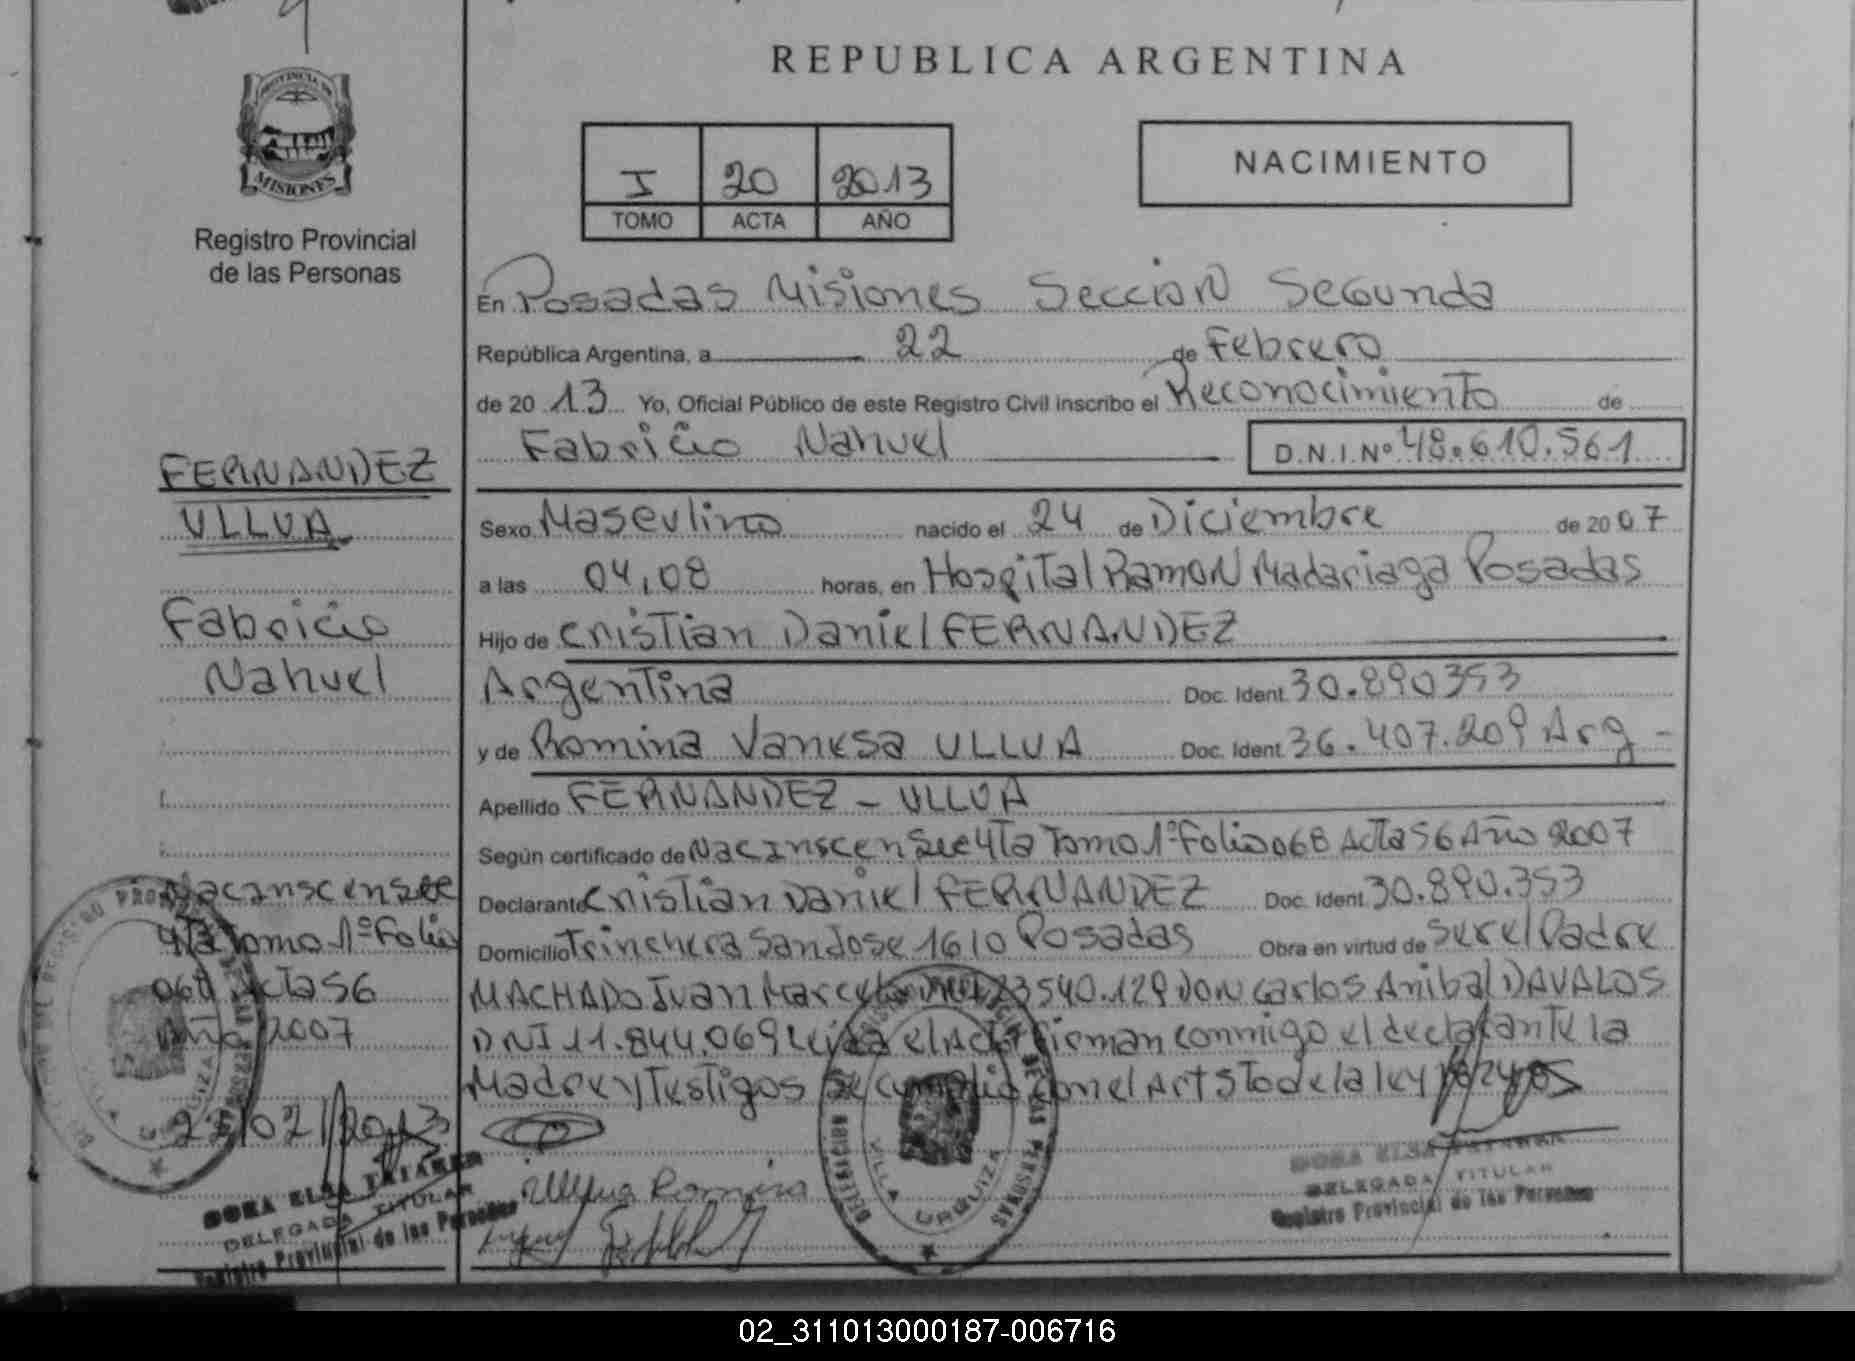 REPUBLICA ARGENTINA
PROVINCIA DE
MISIONES
Registro Provincial
de las Personas
I 20 2013
TOMO ACTA AÑO
NACIMIENTO
En Posadas Misiones Seccion Segunda
República Argentina, a 22 de Febrero
de 20 13 Yo, Oficial Público de este Registro Civil inscribo el Reconocimiento de
Fabricio Nahuel D.N.I.Nº 48.610.561
Sexo Masculino nacido el 24 de Diciembre de 20 07
a las 04,08 horas, en Hospital Ramon Madariaga Posadas
Hijo de Cristian Daniel FERNANDEZ
Argentina Doc. Ident. 30.890353
y de Romina Vanesa ULLUA Doc. Ident. 36.407.209 Arg -
Apellido FERNANDEZ - ULLUA
Según certificado de Nac Inscen See 4ta Tomo 1º Folio 068 Acta 56 Año 2007
Declarante Cristian Daniel FERNANDEZ Doc. Ident. 30.890.353
Domicilio Trinchera San Jose 1610 Posadas Obra en virtud de ser el Padre
MACHADO Juan Marcelo 23540.129 Don Carlos Anibal DAVALOS
DNI 11.844.069 Leida el Acta firman conmigo el declarante la
Madre y Testigos se cumplio con el Art 5To de la ley
Ullua Romina
FERNANDEZ
ULLUA
Fabricio
Nahuel
Nac Inscen See
4ta Tomo 1º Folio
068 Acta 56
Año 2007
22/02/2013
DORA ELSA
DELEGADA TITULAR
Registro Provincial de las Personas
VILLA URQUIZA
DORA ELSA
DELEGADA TITULAR
Registro Provincial de las Personas
02_311013000187-006716